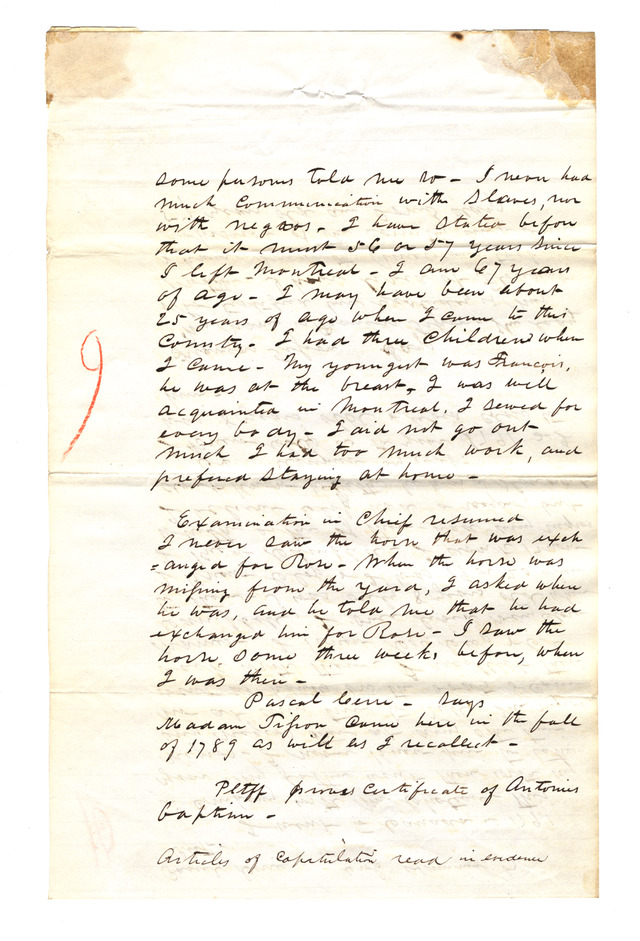 some persons told me so - I never had
much Communication with Slaves, nor
with negros - I have stated before
that it must 56 or 57 years since
I left Montreal - I am 67 years
of age - I may have been about
25 years of age when I came to this
Country - I had three children when
I came - My youngest was Francois,
he was at the breast, I was well
acquainted in Montreal, I sewed for
every body - I did not go out
much I had too much work, and
prefered staying at home -
Examination in Chief resumed
I never saw the horse that was exch
=anged for Rose - When the horse was
missing from the yard, I asked where
he was, and he told me that he had
exchanged him for Rose - I saw the
horse some three weeks before, when
I was there -
Pascal Cerre - says
Madam Tisson came here in the fall
of 1789 as well as I recollect -
Pltff proves Certificate of Antonies
baptism -
Articles of capatulation read in evidence
9